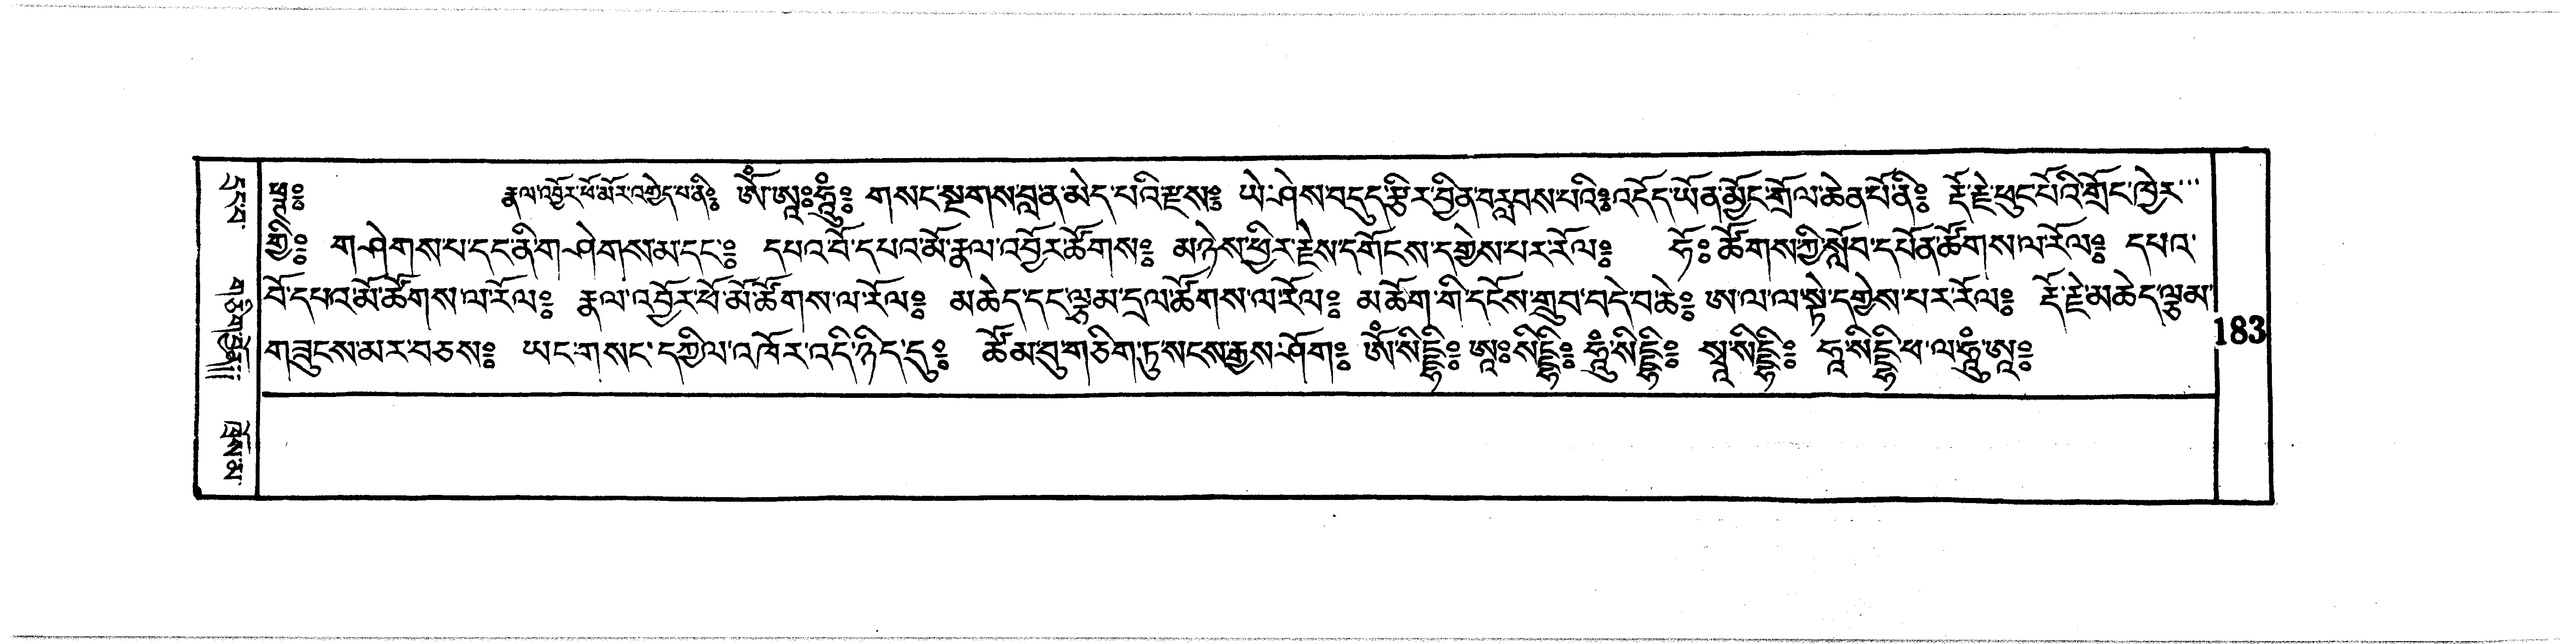 ཕཊ༔ རྣལ་འབྱོར་ཕོ་མོར་འགྱེད་པ་ནི༔ ཨོཾ་ཨཱཿཧཱུྃ༔ གསང་སྔགས་བླན་མེད་པའི་རྫས༔ ཡེ་ཤེས་བདུད་རྩིར་བྱིན་བརླབས་པའི༔ འདོད་ཡོན་མྱོང་གྲོལ་ཆེན་པོ་ནི༔ རྡོ་རྗེ་ཕུང་པོའི་གྲོང་ཁྱེར
གྱི༔ གཤེགས་པ་དང་ནི་གཤེགས་མ་དང་༔ དཔའ་བོ་དཔའ་མོ་རྣལ་འབྱོར་ཚོགས༔ མཉེས་ཕྱིར་རྗེས་དགོངས་དགྱེས་པར་རོལ༔ ཧོ༔ ཚོགས་ཀྱི་སློབ་དཔོན་ཚོགས་ལ་རོལ༔ དཔའ་
བོ་དཔའ་མོ་ཚོགས་ལ་རོལ༔ རྣལ་འབྱོར་ཕོ་མོ་ཚོགས་ལ་རོལ༔ མཆེད་དང་ལྕམ་དྲལ་ཚོགས་ལ་རོལ༔ མཆོག་གི་དངོས་གྲུབ་བདེ་བ་ཆེ༔ ཨ་ལ་ལ་སྟེ་དགྱེས་པར་རོལ༔ རྡོ་རྗེ་མཆེད་ལྕམ་
གཟུངས་མར་བཅས༔ ཡང་གསང་དཀྱིལ་འཁོར་འདི་ཉིད་དུ༔ ཚོམ་བུ་གཅིག་ཏུ་སངས་རྒྱས་ཤོག༔ ཨོཾ་སིདྡྷི༔ ཨཱཿསིདྡྷི༔ ཧཱུྃ་སིདྡྷི༔ སྭཱ་སིདྡྷི༔ ཧཱ་སིདྡྷི་ཕ་ལ་ཧཱུྃ་ཨཱཿ
183